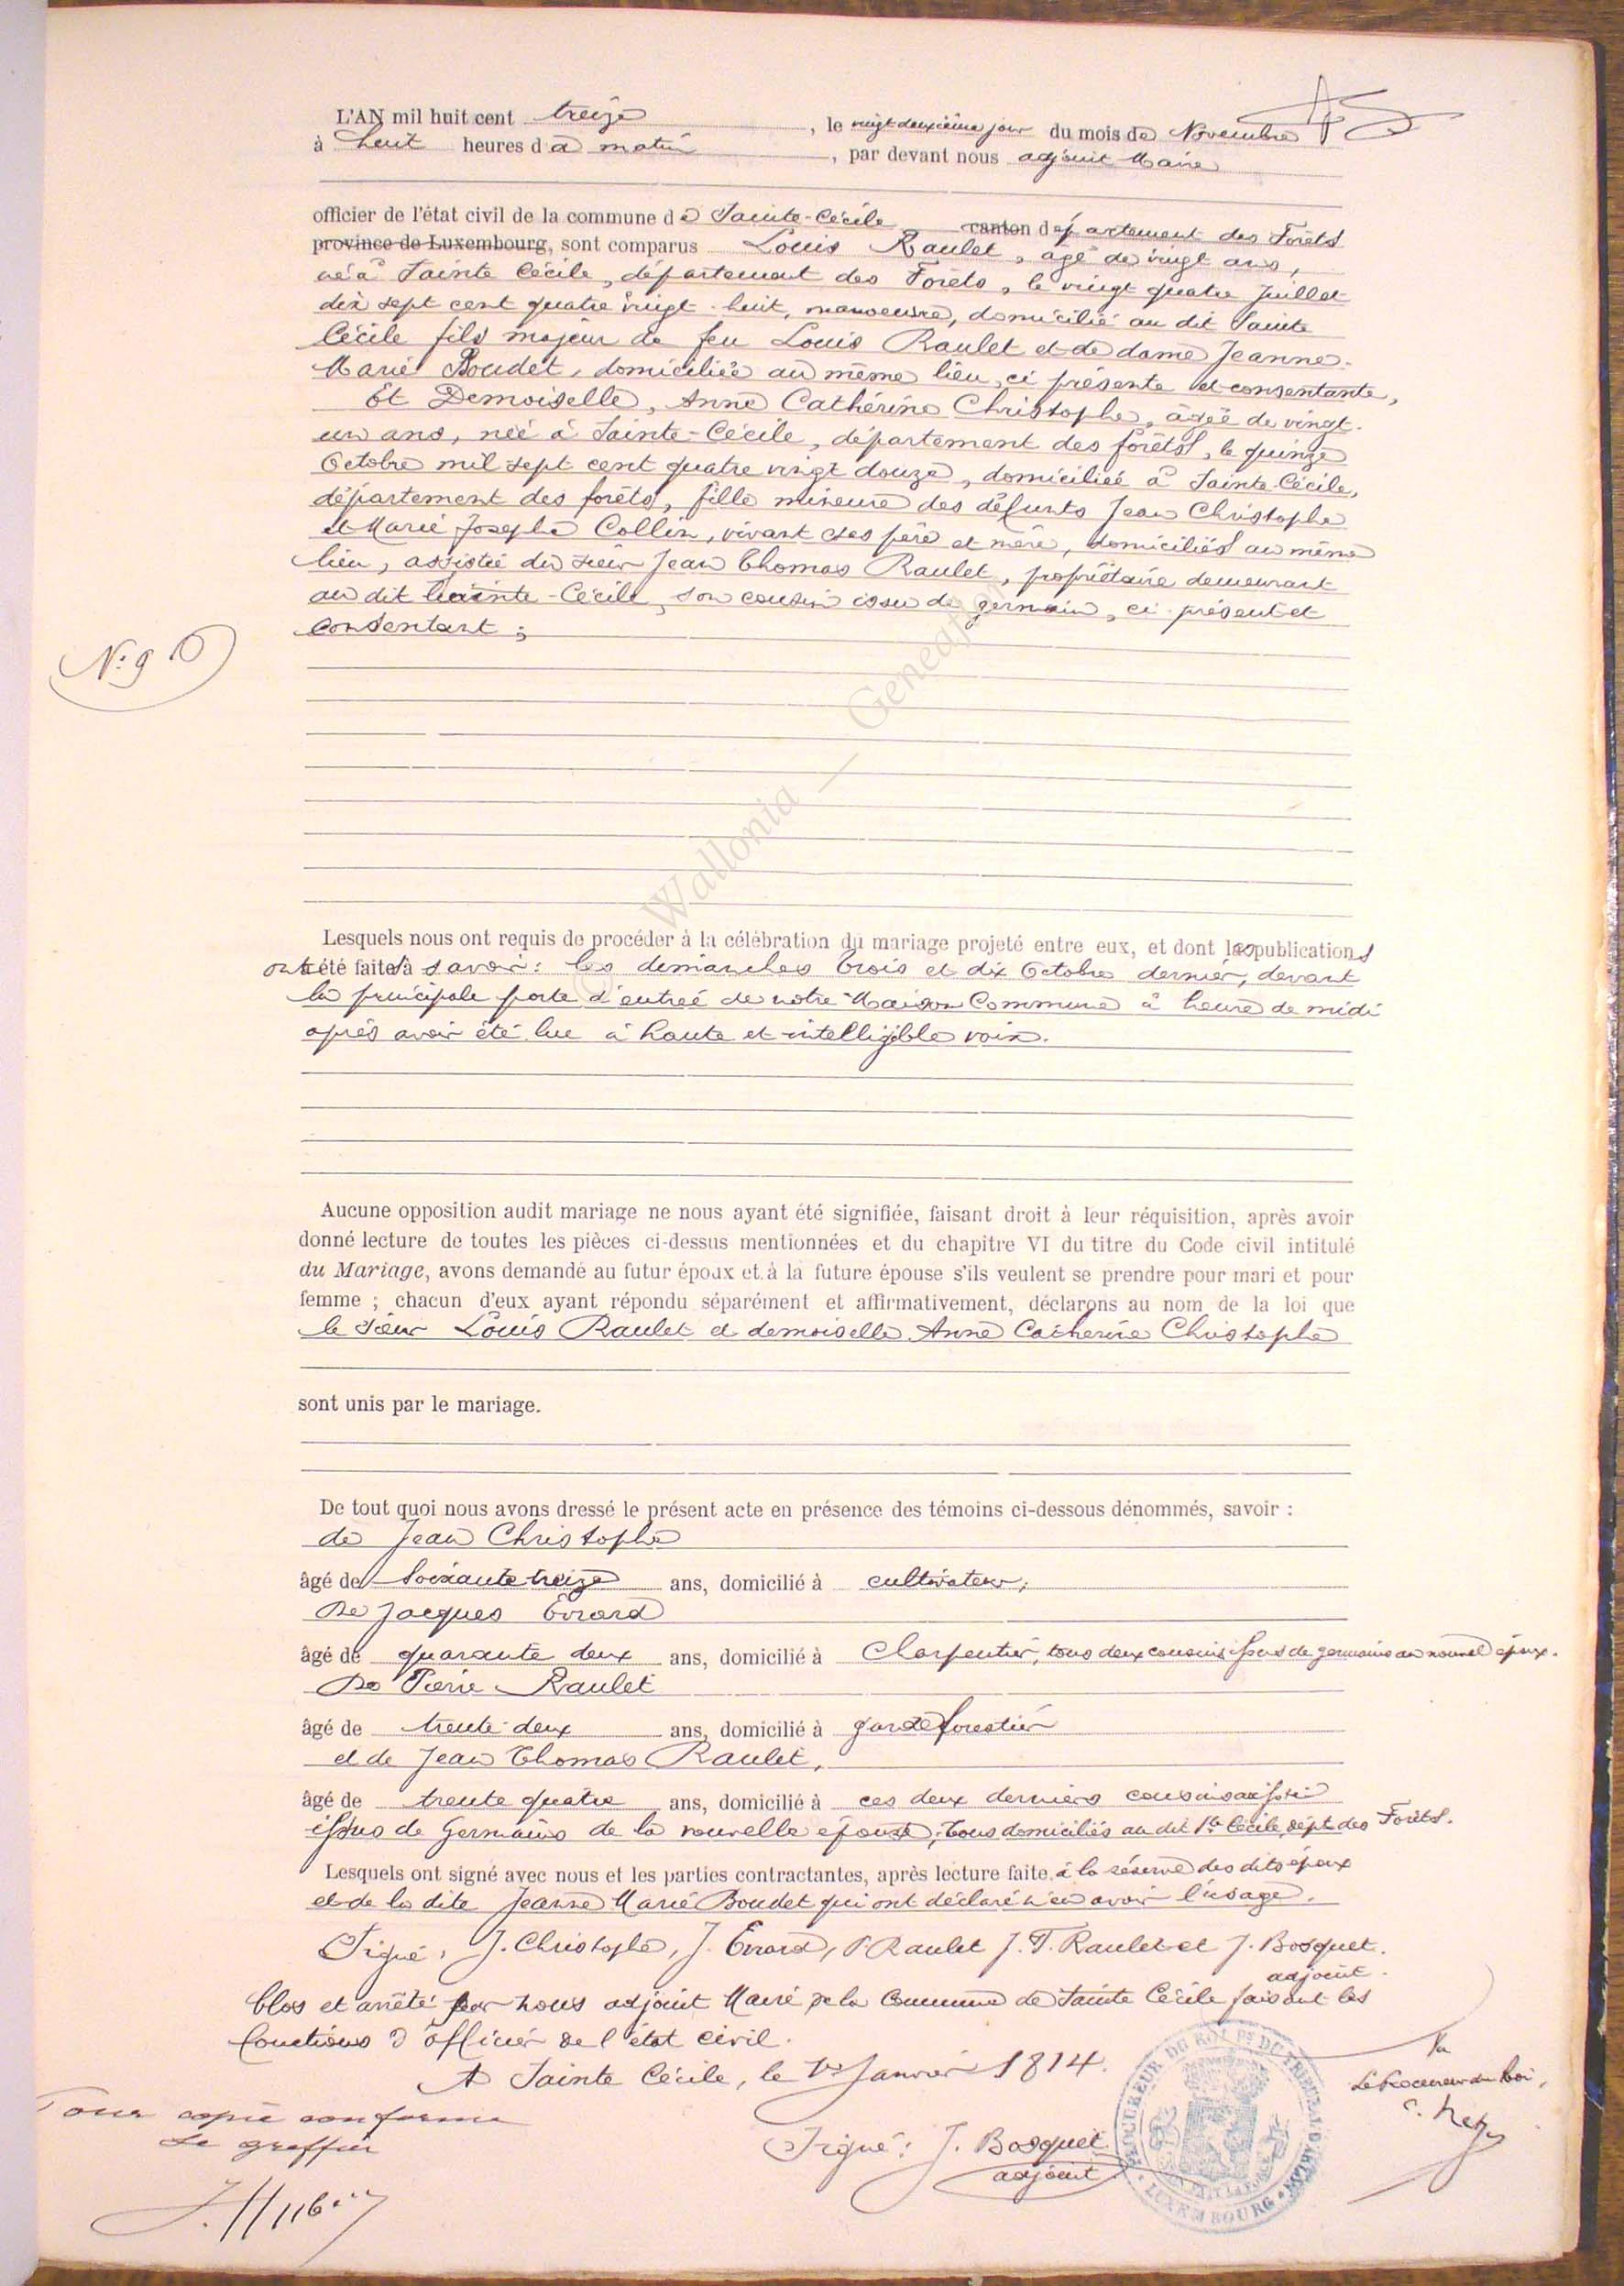 L'AN mil huit cent treize, le vingt deuxième jour du mois de Novembre
à huit heures du matin, par devant nous adjoint Maire
officier de l'état civil de la commune de Sainte-Cécile canton département des Forêts
province de Luxembourg, sont comparus Louis Raulet, âgé de vingt ans,
né à Sainte Cécile, département des Forêts, le vingt quatre Juillet
dix sept cent quatre vingt-huit, manoeuvre, domicilié au dit Sainte
Cécile fils majeur de feu Louis Raulet et de dame Jeanne-
Marie Boudet, domiciliée au même lieu, ci présente et consentante,
Et Demoiselle, Anne Cathérine Christophe, âgée de vingt-
un ans, née à Sainte-Cécile, département des forêts, le quinze
Octobre mil sept cent quatre vingt douze, domiciliée à Sainte-Cécile,
département des forêts, fille mineure des défunts Jean Christophe
et Marie Josephe Collin, vivant ses père et mère, domiciliés au même
lieu, assistée du sieur Jean Thomas Raulet, propriétaire demeurant
au dit Sainte-Cécile, son cousin issu de germain, ci présent et
consentant;
N: 9
© Wallonia — Geneaf
Lesquels nous ont requis de procéder à la célébration du mariage projeté entre eux, et dont les publications
ont été faites à savoir: les dimanches trois et dix Octobre dernier, devant
la principale porte d'entrée de notre Maison Commune à heure de midi
après avoir été lue à haute et intelligible voix.
Aucune opposition audit mariage ne nous ayant été signifiée, faisant droit à leur réquisition, après avoir
donné lecture de toutes les pièces ci-dessus mentionnées et du chapitre VI du titre du Code civil intitulé
du Mariage, avons demandé au futur époux et à la future épouse s'ils veulent se prendre pour mari et pour
femme ; chacun d'eux ayant répondu séparément et affirmativement, déclarons au nom de la loi que
le sieur Louis Raulet et demoiselle Anne Catherine Christophe
sont unis par le mariage.
De tout quoi nous avons dressé le présent acte en présence des témoins ci-dessous dénommés, savoir :
de Jean Christophe
âgé de soixante treize ans, domicilié à cultivateur,
De Jacques Evrard
âgé de quarante deux ans, domicilié à Charpentier, tous deux cousins issus de germains au nouvel époux.
De Pierre Raulet
âgé de trente-deux ans, domicilié à garde forestier
et de Jean Thomas Raulet,
âgé de trente quatre ans, domicilié à ces deux derniers cousins aussi
issus de Germains de la nouvelle épouse; tous domiciliés au dit Ste Cécile, dépt des Forêts.
Lesquels ont signé avec nous et les parties contractantes, après lecture faite, à la réserve des dits époux
et de la dite Jeanne Marie Boudet qui ont déclaré n'en avoir l'usage.
Signé, J. Christophe, J. Evrard, P. Raulet J. T. Raulet et J. Bosquet.
adjoint.
Clos et arrêté par nous adjoint Maire de la Commune de Sainte Cécile faisant les
fonctions d'officier de l'état civil.
A Sainte Cécile, le 1er Janvier 1814.
Signé: J. Bosquet
adjoint
PROCUREUR DU ROI PS DU TRIBUNAL D'ARLON
LUXEMBOURG
L'UNION FAIT LA FORCE
Vu
Le Procureur du Roi,
Pour copie conforme
Le greffier